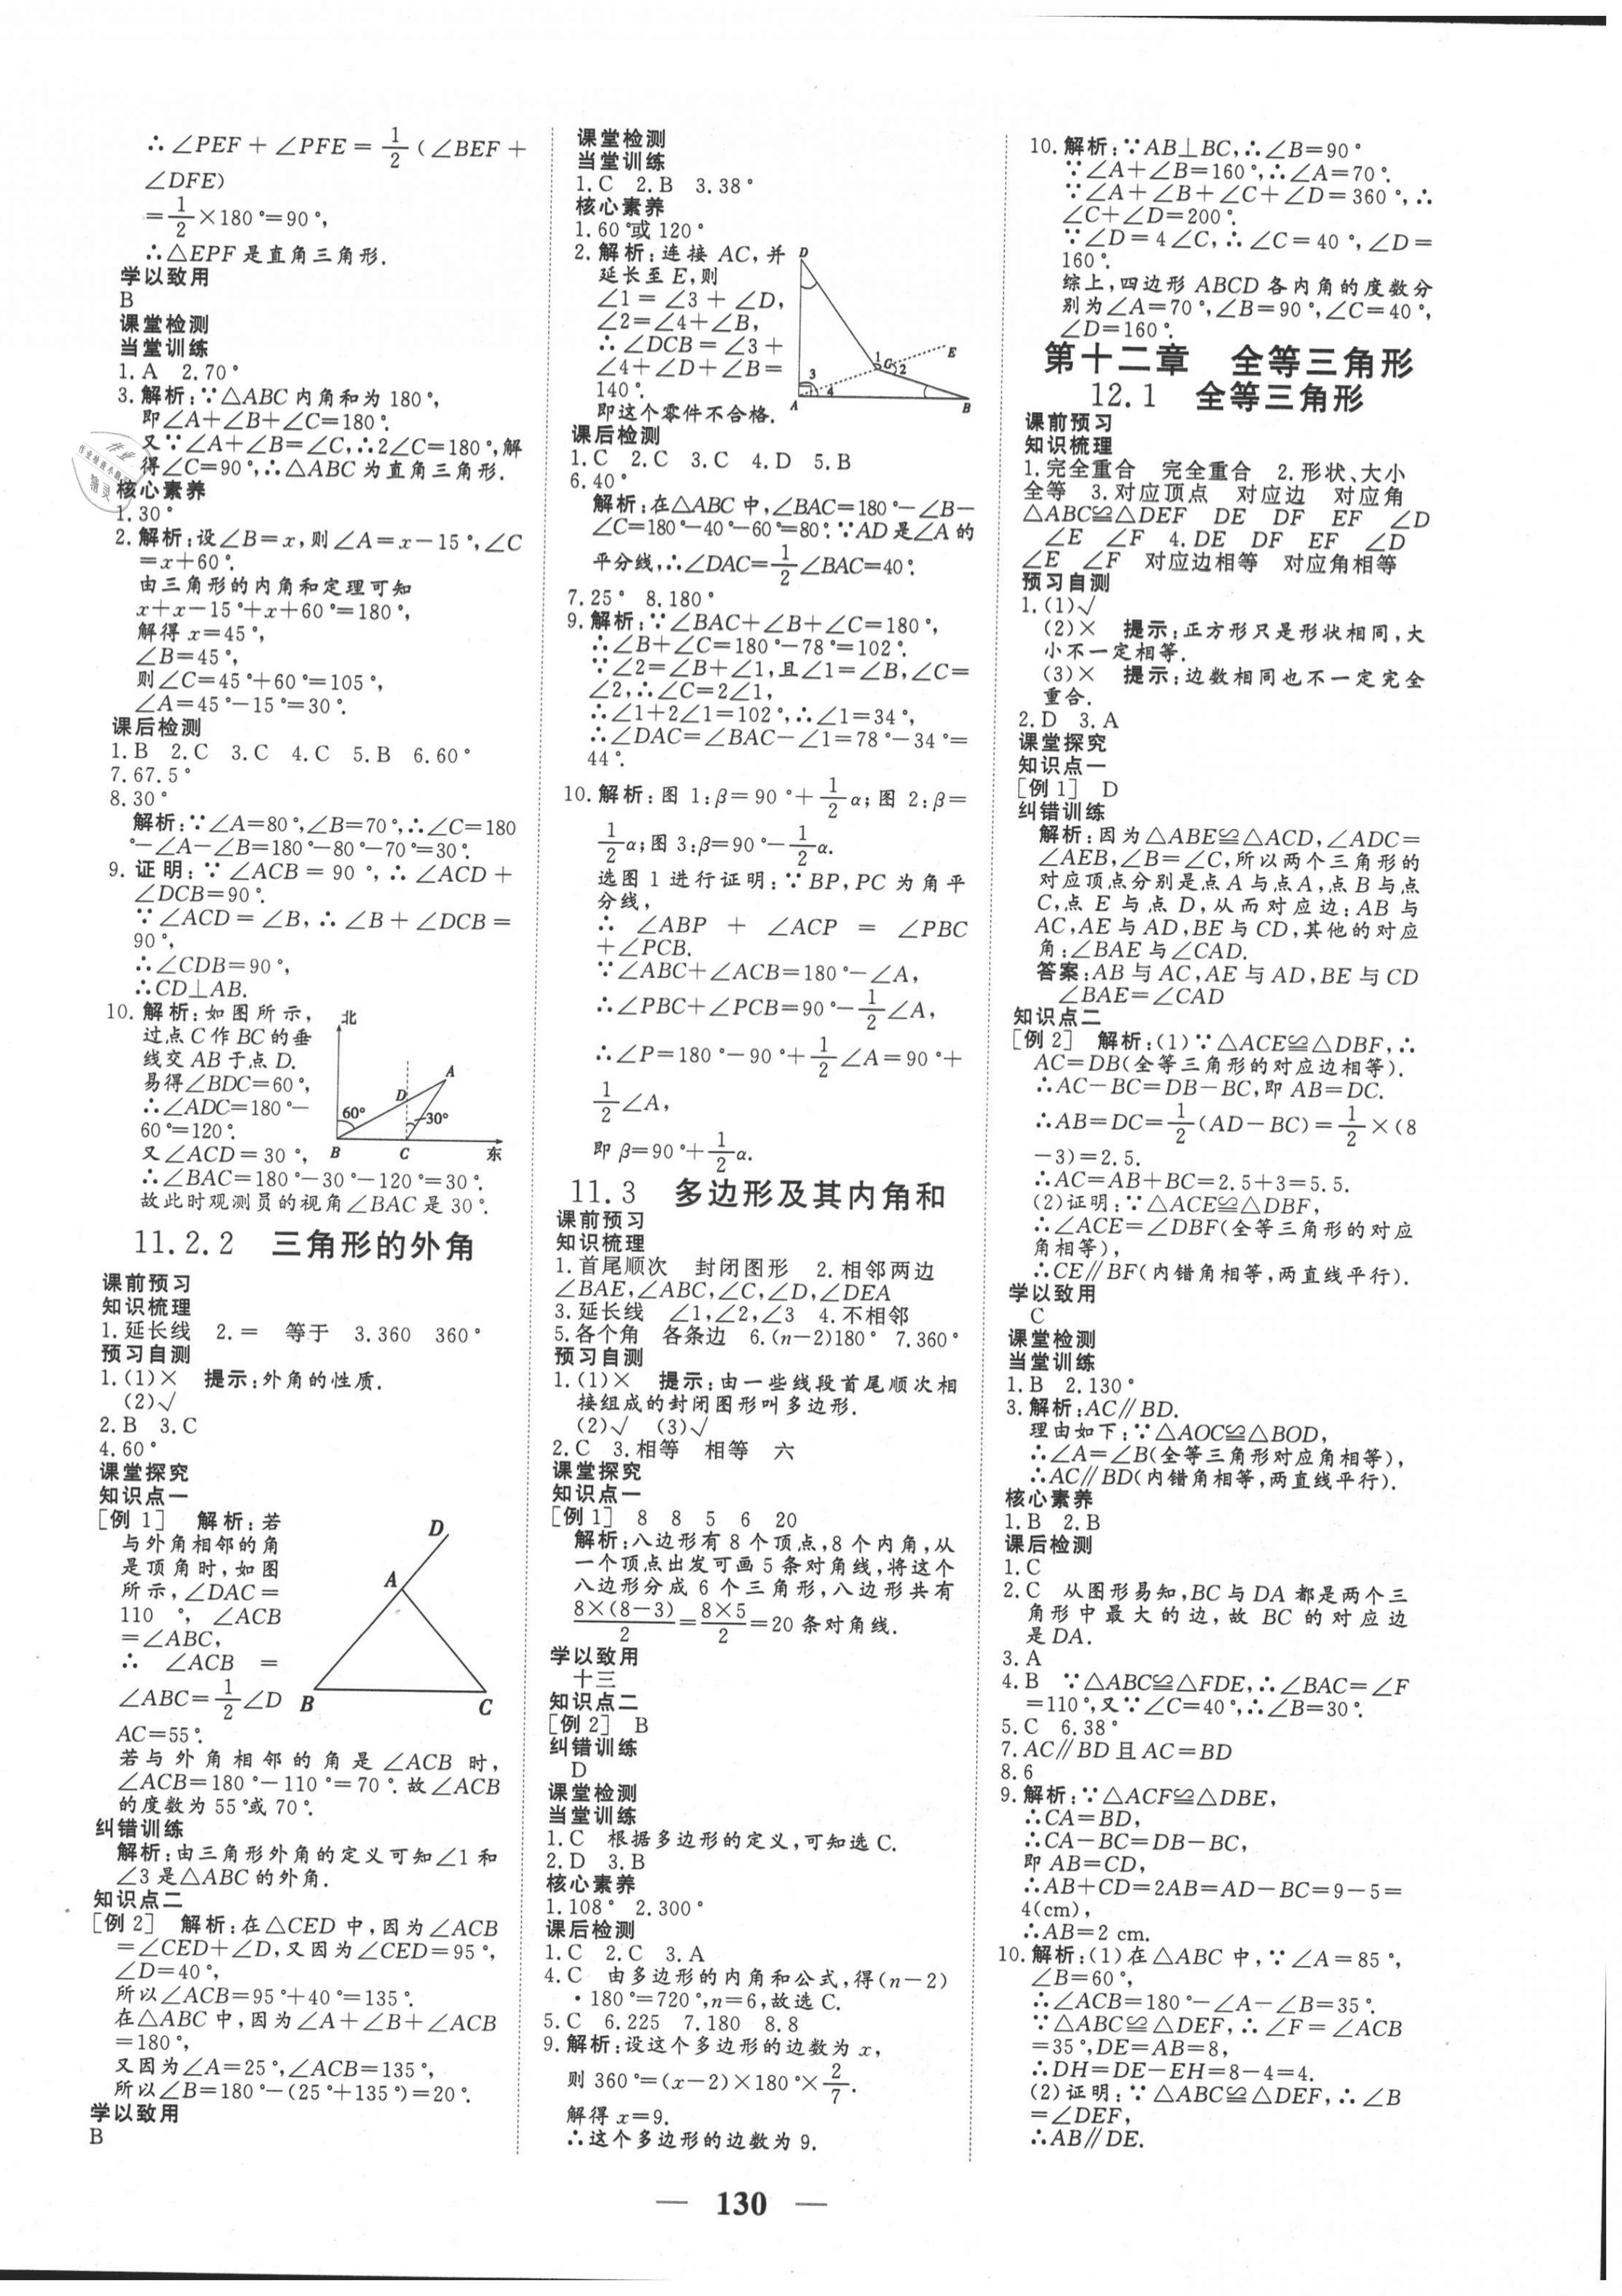 ∴∠PEF+∠PFE=1/2(∠BEF+
∠DFE)
=1/2×180°=90°,
∴△EPF是直角三角形.
学以致用
B
课堂检测
当堂训练
1.A 2.70°
3.解析:∵△ABC内角和为180°,
即∠A+∠B+∠C=180°.
又∵∠A+∠B=∠C,∴2∠C=180°,解
得∠C=90°,∴△ABC为直角三角形.
核心素养
1.30°
2.解析:设∠B=x,则∠A=x-15°,∠C
=x+60°.
由三角形的内角和定理可知
x+x-15°+x+60°=180°,
解得x=45°,
∠B=45°,
则∠C=45°+60°=105°,
∠A=45°-15°=30°.
课后检测
1.B 2.C 3.C 4.C 5.B 6.60°
7.67.5°
8.30°
解析:∵∠A=80°,∠B=70°,∴∠C=180
°-∠A-∠B=180°-80°-70°=30°.
9.证明:∵∠ACB=90°,∴∠ACD+
∠DCB=90°.
∵∠ACD=∠B,∴∠B+∠DCB=
90°,
∴∠CDB=90°,
∴CD⊥AB.
10.解析:如图所示,
过点C作BC的垂
线交AB于点D.
易得∠BDC=60°,
∴∠ADC=180°-
60°=120°.
又∠ACD=30°,
北
A
D
60°
30°
B C 东
∴∠BAC=180°-30°-120°=30°.
故此时观测员的视角∠BAC是30°.
11.2.2 三角形的外角
课前预习
知识梳理
1.延长线 2.= 等于 3.360 360°
预习自测
1.(1)× 提示:外角的性质.
(2)√
2.B 3.C
4.60°
课堂探究
知识点一
[例1] 解析:若
与外角相邻的角
是顶角时,如图
所示,∠DAC=
110°,∠ACB
=∠ABC,
∴ ∠ACB =
∠ABC=1/2∠D
AC=55°.
D
A
B C
若与外角相邻的角是∠ACB时,
∠ACB=180°-110°=70°.故∠ACB
的度数为55°或70°.
纠错训练
解析:由三角形外角的定义可知∠1和
∠3是△ABC的外角.
知识点二
[例2] 解析:在△CED中,因为∠ACB
=∠CED+∠D,又因为∠CED=95°,
∠D=40°,
所以∠ACB=95°+40°=135°.
在△ABC中,因为∠A+∠B+∠ACB
=180°,
又因为∠A=25°,∠ACB=135°,
所以∠B=180°-(25°+135°)=20°.
学以致用
B
课堂检测
当堂训练
1.C 2.B 3.38°
核心素养
1.60°或120°
2.解析:连接AC,并
延长至E,则
∠1=∠3+∠D,
∠2=∠4+∠B,
∴∠DCB=∠3+
∠4+∠D+∠B=
140°.
即这个零件不合格.
D
1 C 2 E
3
4
A B
课后检测
1.C 2.C 3.C 4.D 5.B
6.40°
解析:在△ABC中,∠BAC=180°-∠B-
∠C=180°-40°-60°=80°.∵AD是∠A的
平分线,∴∠DAC=1/2∠BAC=40°.
7.25° 8.180°
9.解析:∵∠BAC+∠B+∠C=180°,
∴∠B+∠C=180°-78°=102°.
∵∠2=∠B+∠1,且∠1=∠B,∠C=
∠2,∴∠C=2∠1,
∴∠1+2∠1=102°,∴∠1=34°,
∴∠DAC=∠BAC-∠1=78°-34°=
44°.
10.解析:图1:β=90°+1/2α;图2:β=
1/2α;图3:β=90°-1/2α.
选图1进行证明:∵BP,PC为角平
分线,
∴ ∠ABP + ∠ACP = ∠PBC
+∠PCB.
∵∠ABC+∠ACB=180°-∠A,
∴∠PBC+∠PCB=90°-1/2∠A,
∴∠P=180°-90°+1/2∠A=90°+
1/2∠A,
即β=90°+1/2α.
11.3 多边形及其内角和
课前预习
知识梳理
1.首尾顺次 封闭图形 2.相邻两边
∠BAE,∠ABC,∠C,∠D,∠DEA
3.延长线 ∠1,∠2,∠3 4.不相邻
5.各个角 各条边 6.(n-2)180° 7.360°
预习自测
1.(1)× 提示:由一些线段首尾顺次相
接组成的封闭图形叫多边形.
(2)√ (3)√
2.C 3.相等 相等 六
课堂探究
知识点一
[例1] 8 8 5 6 20
解析:八边形有8个顶点,8个内角,从
一个顶点出发可画5条对角线,将这个
八边形分成6个三角形,八边形共有
8×(8-3)/2=8×5/2=20条对角线.
学以致用
十三
知识点二
[例2] B
纠错训练
D
课堂检测
当堂训练
1.C 根据多边形的定义,可知选C.
2.D 3.B
核心素养
1.108° 2.300°
课后检测
1.C 2.C 3.A
4.C 由多边形的内角和公式,得(n-2)
·180°=720°,n=6,故选C.
5.C 6.225 7.180 8.8
9.解析:设这个多边形的边数为x,
则360°=(x-2)×180°×2/7.
解得x=9.
∴这个多边形的边数为9.
10.解析:∵AB⊥BC,∴∠B=90°
∵∠A+∠B=160°,∴∠A=70°.
∵∠A+∠B+∠C+∠D=360°,∴
∠C+∠D=200°.
∵∠D=4∠C,∴∠C=40°,∠D=
160°.
综上,四边形ABCD各内角的度数分
别为∠A=70°,∠B=90°,∠C=40°,
∠D=160°.
第十二章 全等三角形
12.1 全等三角形
课前预习
知识梳理
1.完全重合 完全重合 2.形状、大小
全等 3.对应顶点 对应边 对应角
△ABC≌△DEF DE DF EF ∠D
∠E ∠F 4.DE DF EF ∠D
∠E ∠F 对应边相等 对应角相等
预习自测
1.(1)√
(2)× 提示:正方形只是形状相同,大
小不一定相等.
(3)× 提示:边数相同也不一定完全
重合.
2.D 3.A
课堂探究
知识点一
[例1] D
纠错训练
解析:因为△ABE≌△ACD,∠ADC=
∠AEB,∠B=∠C,所以两个三角形的
对应顶点分别是点A与点A,点B与点
C,点E与点D,从而对应边:AB与
AC,AE与AD,BE与CD,其他的对应
角:∠BAE与∠CAD.
答案:AB与AC,AE与AD,BE与CD
∠BAE=∠CAD
知识点二
[例2] 解析:(1)∵△ACE≌△DBF,∴
AC=DB(全等三角形的对应边相等).
∴AC-BC=DB-BC,即AB=DC.
∴AB=DC=1/2(AD-BC)=1/2×(8
-3)=2.5.
∴AC=AB+BC=2.5+3=5.5.
(2)证明:∵△ACE≌△DBF,
∴∠ACE=∠DBF(全等三角形的对应
角相等),
∴CE∥BF(内错角相等,两直线平行).
学以致用
C
课堂检测
当堂训练
1.B 2.130°
3.解析:AC∥BD.
理由如下:∵△AOC≌△BOD,
∴∠A=∠B(全等三角形对应角相等),
∴AC∥BD(内错角相等,两直线平行).
核心素养
1.B 2.B
课后检测
1.C
2.C 从图形易知,BC与DA都是两个三
角形中最大的边,故BC的对应边
是DA.
3.A
4.B ∵△ABC≌△FDE,∴∠BAC=∠F
=110°,又∵∠C=40°,∴∠B=30°.
5.C 6.38°
7.AC∥BD且AC=BD
8.6
9.解析:∵△ACF≌△DBE,
∴CA=BD,
∴CA-BC=DB-BC,
即AB=CD,
∴AB+CD=2AB=AD-BC=9-5=
4(cm),
∴AB=2 cm.
10.解析:(1)在△ABC中,∵∠A=85°,
∠B=60°,
∴∠ACB=180°-∠A-∠B=35°.
∵△ABC≌△DEF,∴∠F=∠ACB
=35°,DE=AB=8,
∴DH=DE-EH=8-4=4.
(2)证明:∵△ABC≌△DEF,∴∠B
=∠DEF,
∴AB∥DE.
— 130 —